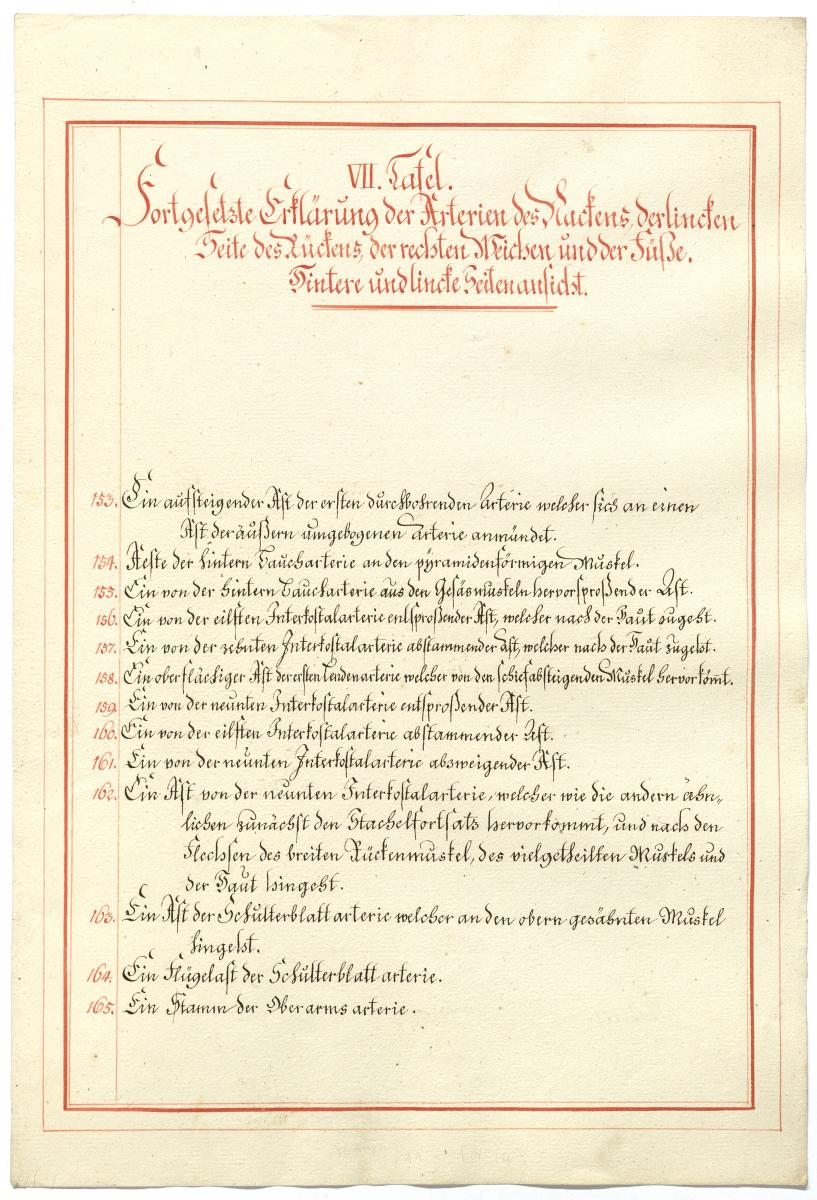 VII. Tafel.
Fortgesetzte Erklärung der Arterien des Nackens, der lincken
Seite des Rückens, der rechten Weichen und der Füße.
Hintere und lincke Seitenansicht.
153. Ein aufsteigender Ast der ersten durchbohrenden Arterie welcher sich an einen
Ast der äußern umgebogenen Arterie anmündet.
154. Aeste der hintern Baucharterie an den pyramidenförmigen Muskel.
155. Ein von der hintern Baucharterie aus den Gesäsmuskeln hervorsproßender Ast.
156. Ein von der eilften Interkostalarterie entsproßender Ast, welcher nach der Haut zugeht.
157. Ein von der zehnten Interkostalarterie abstammender Ast, welcher nach der Haut zugeht.
158. Ein oberflächiger Ast der ersten Lendenarterie welcher von den schiefabsteigenden Muskel hervorkom̄t.
159. Ein von der neunten Interkostalarterie entsproßender Ast.
160. Ein von der eilften Interkostalarterie abstammender Ast.
161. Ein von der neunten Interkostalarterie abzweigender Ast.
162. Ein Ast von der neunten Interkostalarterie, welcher wie die andern ähn„
lichen zunächst den Stachelfortsatz hervorkommt, und nach den
Flechsen des breiten Rückenmuskel, des vielgetheilten Muskels und
der Haut hingeht.
163. Ein Ast der Schulterblattarterie welcher an den obern gezähnten Muskel
hingeht.
164. Ein Flügelast der Schulterblattarterie.
165. Ein Stamm der Oberarmsarterie.